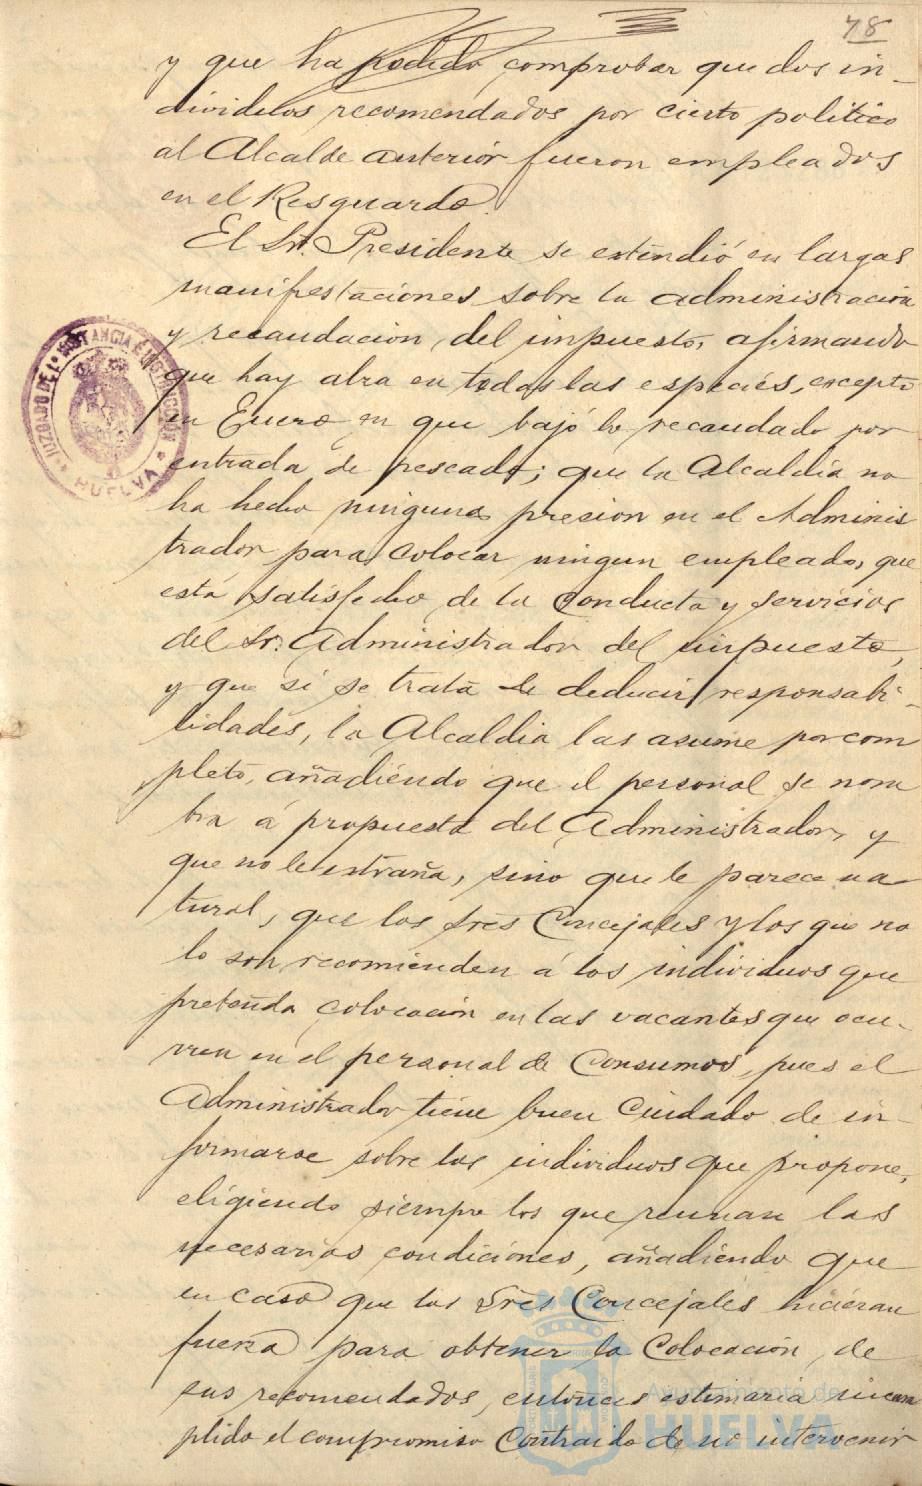 78
y que ha podido comprobar que dos in-
dividuos recomendados por cierto politico
al Alcalde anterior fueron empleados
en el Resguardo.
El Sr. Presidente se estendió en largas
manifestaciones sobre la administracion
y recaudacion del impuesto, afirmando
que hay alza en todas las especies, excepto
en Enero en que bajó lo recaudado por
entrada de pescado; que la Alcaldia no
ha hecho ninguna presion en el Adminis
trador para colocar ningun empleado, que
está satisfecho de la conducta y servicios
del Sr. Administrador del impuesto,
y que si se trata de deducir responsabi-
lidades, la Alcaldia las asume por com
pleto, añadiendo que el personal se nom
bra á propuesta del Administrador, y
que no le estraña, sino que le parece na
tural, que los Sres Concejales y los que no
lo son recomienden á los individuos que
pretenda colocación en las vacantes que ocu-
rren en el personal de Consumos, pues el
Administrador tiene buen cuidado de in-
formarse sobre los individuos que propone,
eligiendo siempre los que reunan las
necesarias condiciones, añadiendo que
en caso que los Sres Concejales hicieran
fuerza para obtener la colocación de
sus recomendados, entonces estimaria incum
plido el compromiso contraido de no intervenir
JUZGADO DE 1ª INSTANCIA É INSTRUCCION
HUELVA
Ayuntamiento de
HUELVA